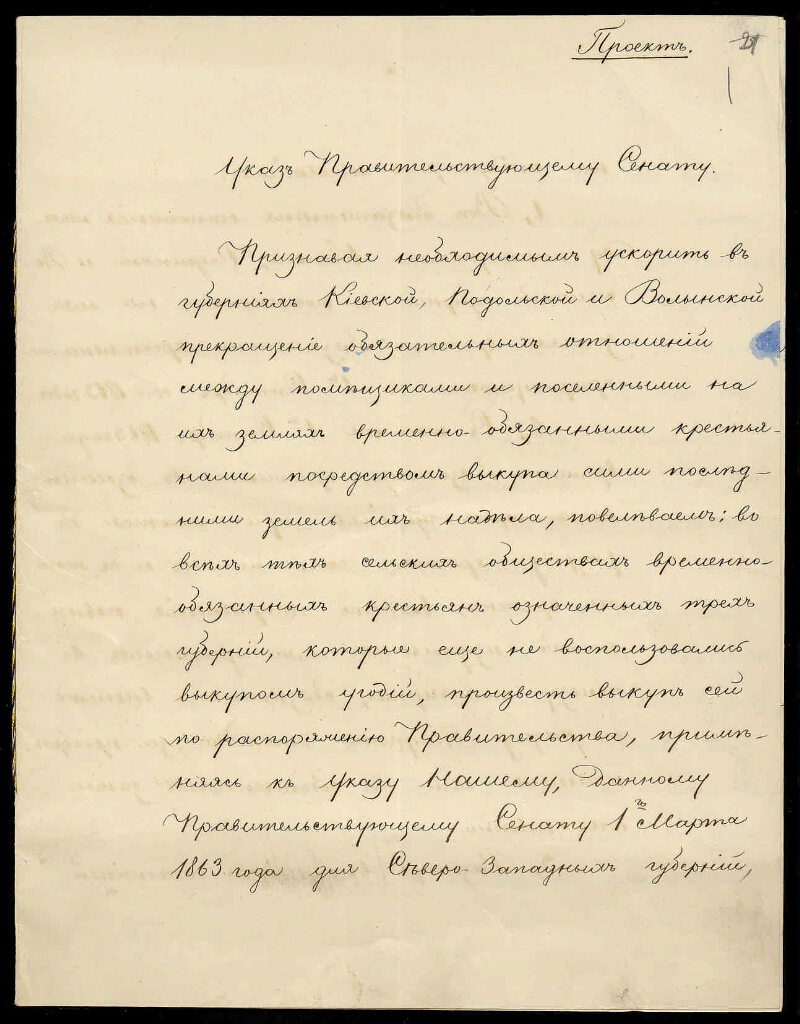 Проектъ.
21
Указъ Правительствующему Сенату.
Признавая необходимымъ ускорить въ
губерніяхъ Кіевской, Подольской и Волынской
прекращеніе обязательныхъ отношеній
между помѣщиками и поселенными на
ихъ земляхъ временно-обязанными крестья-
нами посредствомъ выкупа сими послѣд-
ними земель ихъ надѣла, повелѣваемъ: во
всѣхъ тѣхъ сельскихъ обществахъ временно-
обязанныхъ крестьянъ означенныхъ трехъ
губерній, которые еще не воспользовались
выкупомъ угодій, произвесть выкупъ сей
по распоряженію Правительства, примѣ-
няясь къ Указу Нашему, данному
Правительствующему Сенату 1го Марта
1863 года для Сѣверо-Западныхъ губерній,